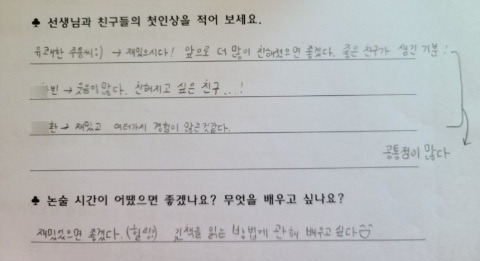 ♣ 선생님과 친구들의 첫인상을 적어 보세요.
유쾌한 주용씨:) → 재밌으시다! 앞으로 더 많이 친해졌으면 좋겠다. 좋은 친구가 생긴 기분:
빈 → 웃음이 많다. 친해지고 싶은 친구...!
환 → 재밌고 여러가지 경험이 많은것같다.
공통점이 많다
♣ 논술 시간이 어땠으면 좋겠나요? 무엇을 배우고 싶나요?
재밌었으면 좋겠다. 긴책을 읽는 방법에 관해 배우고 싶다